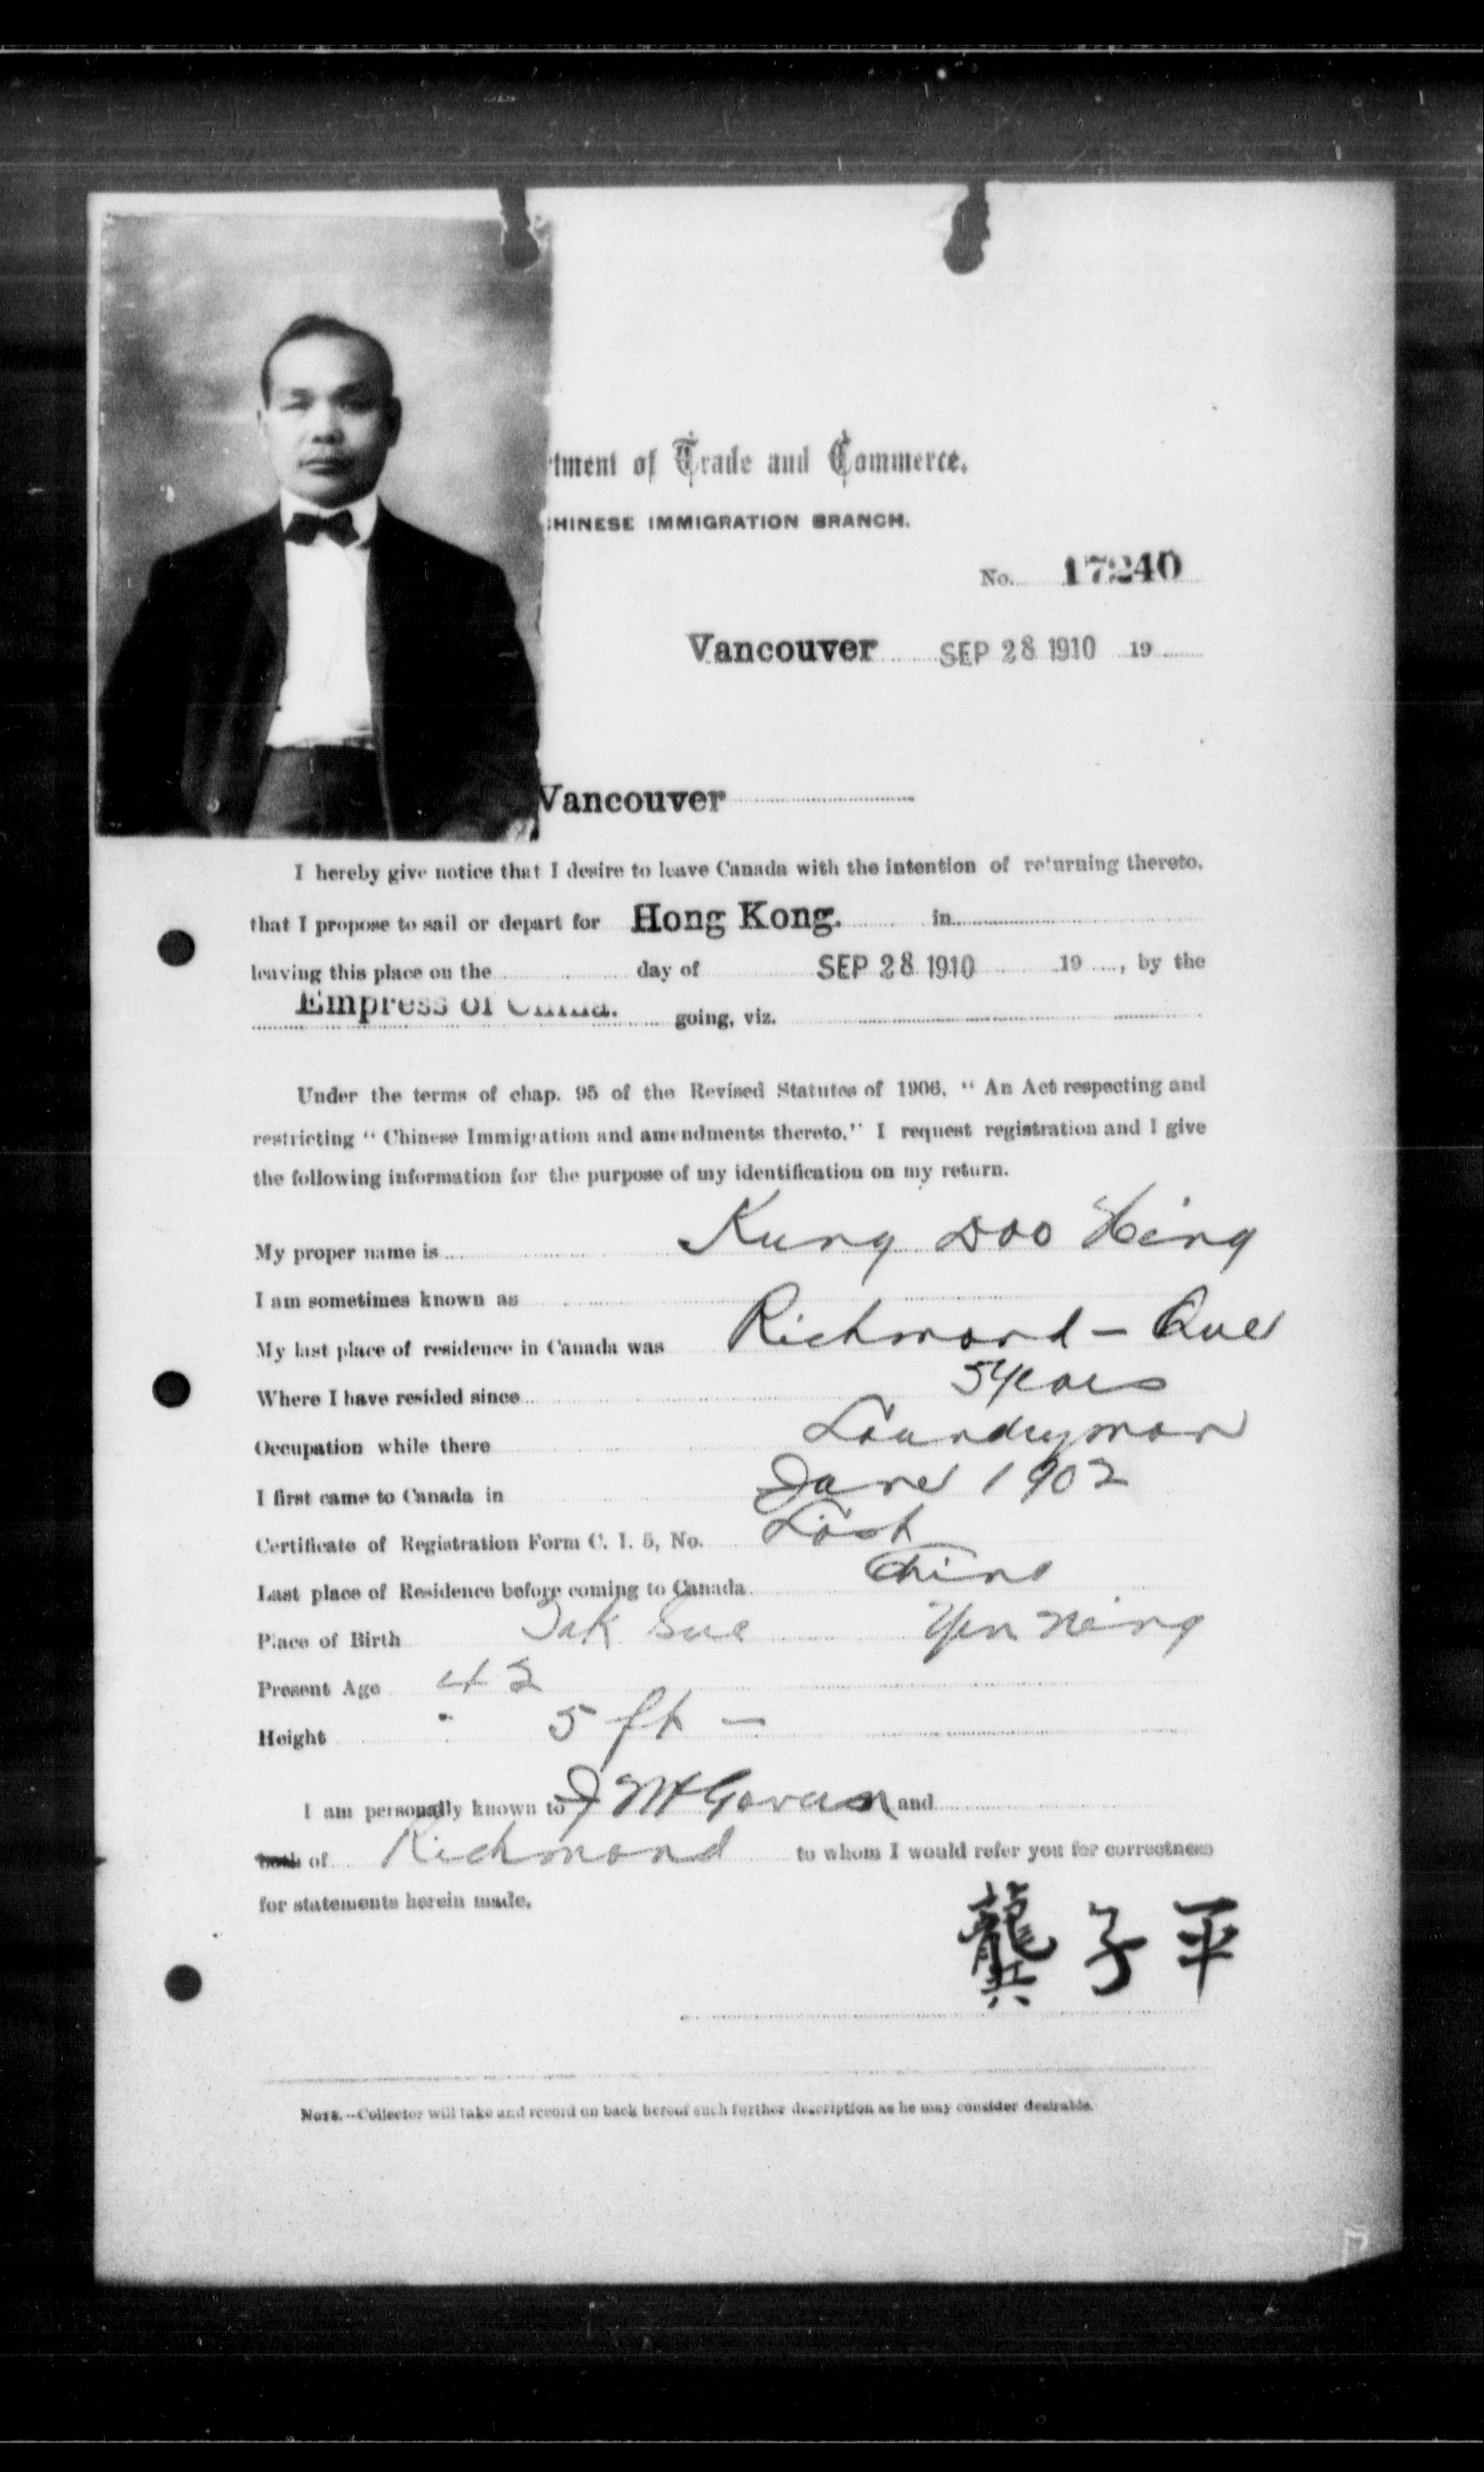 rtment of Trade and Commerce.
CHINESE IMMIGRATION BRANCH.
No. 17240
Vancouver SEP 28 1910 19
Vancouver
I hereby give notice that I desire to leave Canada with the intention of returning thereto.
that I propose to sail or depart for Hong Kong. in
leaving this place on the day of SEP 28 1910 19 , by the
Empress of China. going, viz.
Under the terms of chap. 95 of the Revised Statutes of 1906, “ An Act respecting and
restricting “ Chinese Immigration and amendments thereto.” I request registration and I give
the following information for the purpose of my identification on my return.
My proper name is Kung Doo Hing
I am sometimes known as
My last place of residence in Canada was Richmond - Que
Where I have resided since 5 years
Occupation while there Laundryman
I first came to Canada in 1902
Certificate of Registration Form C. I. 5, No. Lost
Last place of Residence before coming to Canada China
Place of Birth Tak Sue Yen Ning
Present Age 42
Height 5 ft -
I am personally known to J McGovan and
both of Richmond to whom I would refer you for correctness
for statements herein made.
龔子平
NOTE.—Collector will take and record on back hereof such further description as he may consider desirable.